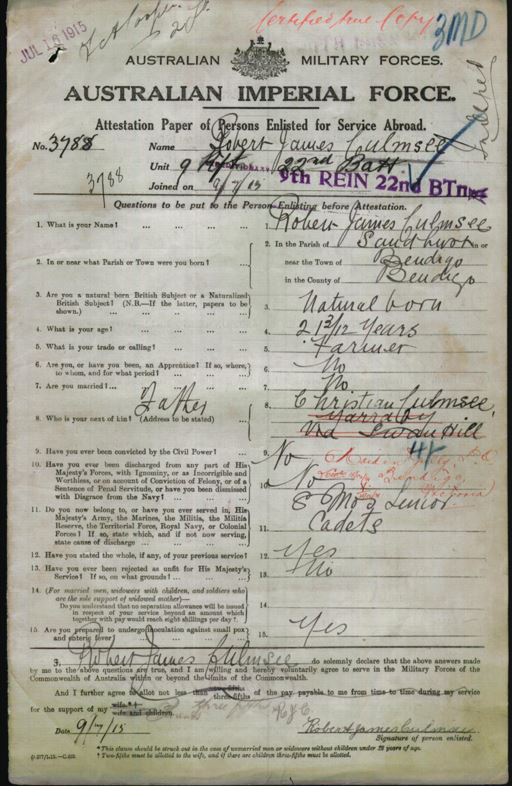 JUL 16 1915
Certified true Copy
3MD
AUSTRALIAN MILITARY FORCES.
AUSTRALIAN IMPERIAL FORCE.
Attestation Paper of Persons Enlisted for Service Abroad.
No. 3788 Name Robert James Culmsee
3788 Unit 9 Rft 22nd Batt
9th REIN 22nd BTn
Joined on 9/7/15
Questions to be put to the Person Enlisting before Attestation.
1. What is your Name? ... 1. Robert James Culmsee
2. In or near what Parish or Town were you born? ... 2. In the Parish of Sandhurst in or
near the Town of Bendigo
in the County of Bendigo
3. Are you a natural born British Subject or a Naturalized British Subject? (N.B.—If the latter, papers to be shown.) 3. Natural born
4. What is your age? ... 4. 21 3/12 Years
5. What is your trade or calling? ... 5. Farmer
6. Are you, or have you been, an Apprentice? If so, where, to whom, and for what period? ... 6. No
7. Are you married? ... 7. No
Father
8. Who is your next of kin? (Address to be stated) 8. Christian Culmsee,
Via Swan Hill
9. Have you ever been convicted by the Civil Power? ... 9. No
10. Have you ever been discharged from any part of His Majesty's Forces, with Ignominy, or as Incorrigible and Worthless, or on account of Conviction of Felony, or of a Sentence of Penal Servitude, or have you been dismissed with Disgrace from the Navy? ... 10. No
Bendigo
Victoria
11. Do you now belong to, or have you ever served in, His Majesty's Army, the Marines, the Militia, the Militia Reserve, the Territorial Force, Royal Navy, or Colonial Forces? If so, state which, and if not now serving, state cause of discharge ... 11. 8 Mos Senior
Cadets
12. Have you stated the whole, if any, of your previous service? 12. Yes
13. Have you ever been rejected as unfit for His Majesty's Service? If so, on what grounds? ... 13. No
14. (For married men, widowers with children, and soldiers who are the sole support of widowed mother)—
Do you understand that no separation allowance will be issued in respect of your service beyond an amount which together with pay would reach eight shillings per day?
15. Are you prepared to undergo inoculation against small pox and enteric fever? 15. Yes
3. Robert James Culmsee do solemnly declare that the above answers made
by me to the above questions are true, and I am willing and hereby voluntarily agree to serve in the Military Forces of the
Commonwealth of Australia within or beyond the limits of the Commonwealth.
And I further agree to allot not less than two-fifths three-fifths of the pay payable to me from time to time during my service
for the support of my wife* wife and children. three fifths RJC
Date 9/7/15 Robert James Culmsee
Signature of person enlisted.
* This clause should be struck out in the case of unmarried men or widowers without children under 18 years of age.
† Two-fifths must be allotted to the wife, and if there are children three-fifths must be allotted.